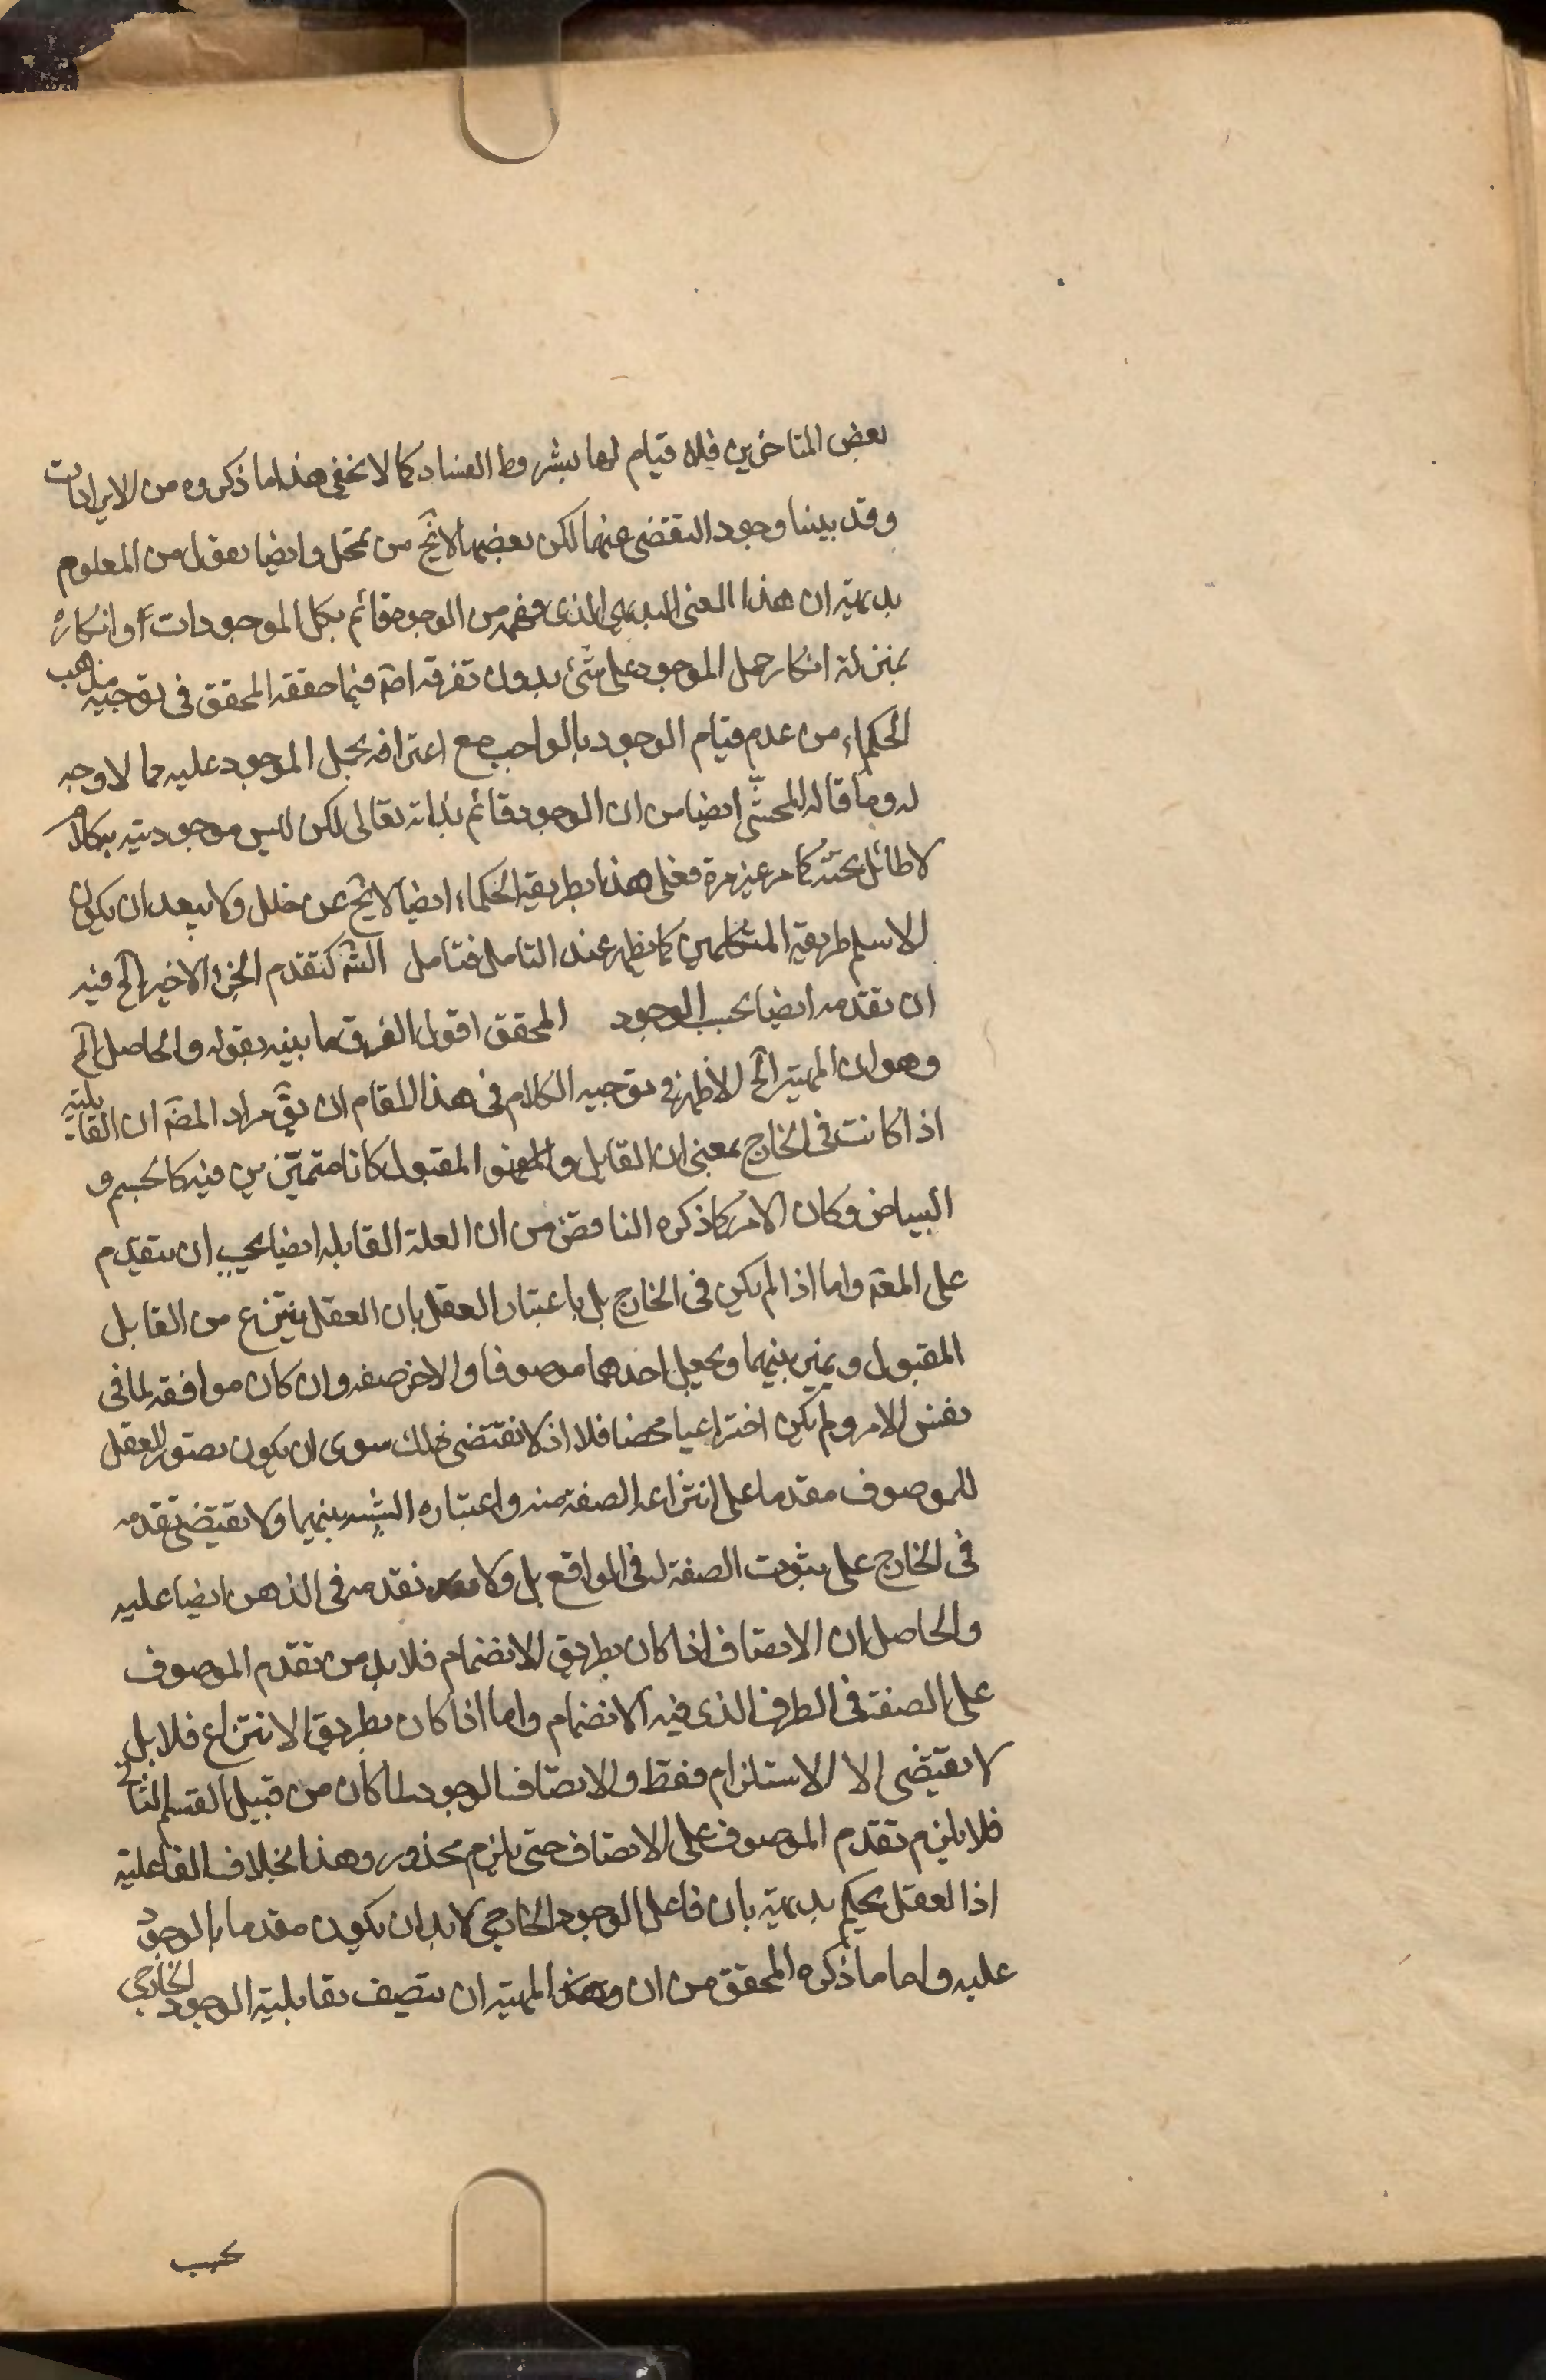 بعض المتاخرين فلا قيام لها بشروط الفساد كما لا يخفى هذا ما ذكروه من الايرادات
وقد بينا وجود التقضى عنها لكن بعضها لا يخ من تمحل وايضا نقول من المعلوم
بديهية ان هذا المعنى البديهى الذى نفهمه من الوجود قائم بكل الموجودات وانكاره
بمنزلة انكار حمل الموجود على شئ بدون تفرقه اصلا فيما حققه المحقق فى توجيه مذهب
الحكماء من عدم قيام الوجود بالواجب مع اعترافه بحمل الموجود عليه مما لا وجه
له وما قاله المحشى ايضا من ان الوجود قائم بذاته تعالى لكن ليس موجوديته به كلام
لا طائل تحته كما مر غير مرة فعلى هذا طريقة الحكماء ايضا لا يخ عن خلل ولا يبعد ان يكون
الاسلم طريقة المتكلمين كما يظهر عند التامل فتامل الش كتقدم الجزء الاخير الخ فيه
ان تقدمه ايضا بحسب الوجود المحقق اقول الفرق ما بينه بقوله والحاصل الخ
وهو ان المهية الخ الاظهر فى توجيه الكلام فى هذا المقام ان يق مراد المص ان القابلية
اذا كانت فى الخارج بمعنى ان القابل و المقبول كانا متميزين فيه كالجسم و
البياض وكان الامر كما ذكره الناقض من ان العلة القابلة ايضا يجب ان يتقدم
على المعة واما اذا لم يكن فى الخارج بل باعتبار العقل بان العقل ينتزع من القابل
المقبول ويميز بينهما ويجعل احدهما موصوفا والاخر صفه وان كان موافقه لما فى
نفس الامر ولم يكن اختراعيا محضا فلا اذ لا نقتضى ذلك سوى ان يكون تصور العقل
للموصوف مقدما على انتزاعه الصفة منه واعتباره النسبة بينهما ولا يقتضى تقدمه
فى الخارج على ثبوت الصفة له فى الواقع بل ولا تقدمه فى الذهن ايضا عليه
والحاصل ان الاتصاف اذا كان بطريق الانضمام فلا بد من تقدم الموصوف
على الصفة فى الطرف الذى فيه الانضمام واما اذا كان بطريق الانتزاع فلا بل
لا يقتضى الا الاستلزام فقط والاتصاف الوجود لما كان من قبيل القسم الثانى
فلا يلزم تقدم الموصوف على الاتصاف حتى يلزم محذور وهذا بخلاف الفاعلية
اذ العقل يحكم بديهية بان فاعل الوجود الخارجى لا بد ان يكون مقدما بالوجود
عليه واما ما ذكره المحقق من ان المهية ان يتصف بقابلية الوجود الخارجى
بحسب